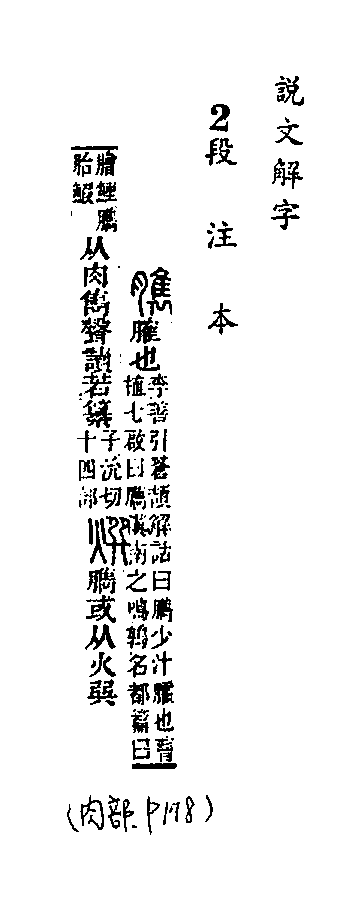 說文解字
2段注本
臇臛也李善引蒼頡解詁曰臇少汁臛也曹植七啟曰臇漢南之鳴鶉名都篇曰
膾鯉臇胎鰕从肉雋聲讀若纂子沇切十四部𤏸臇或从火巽
(肉部、P178)